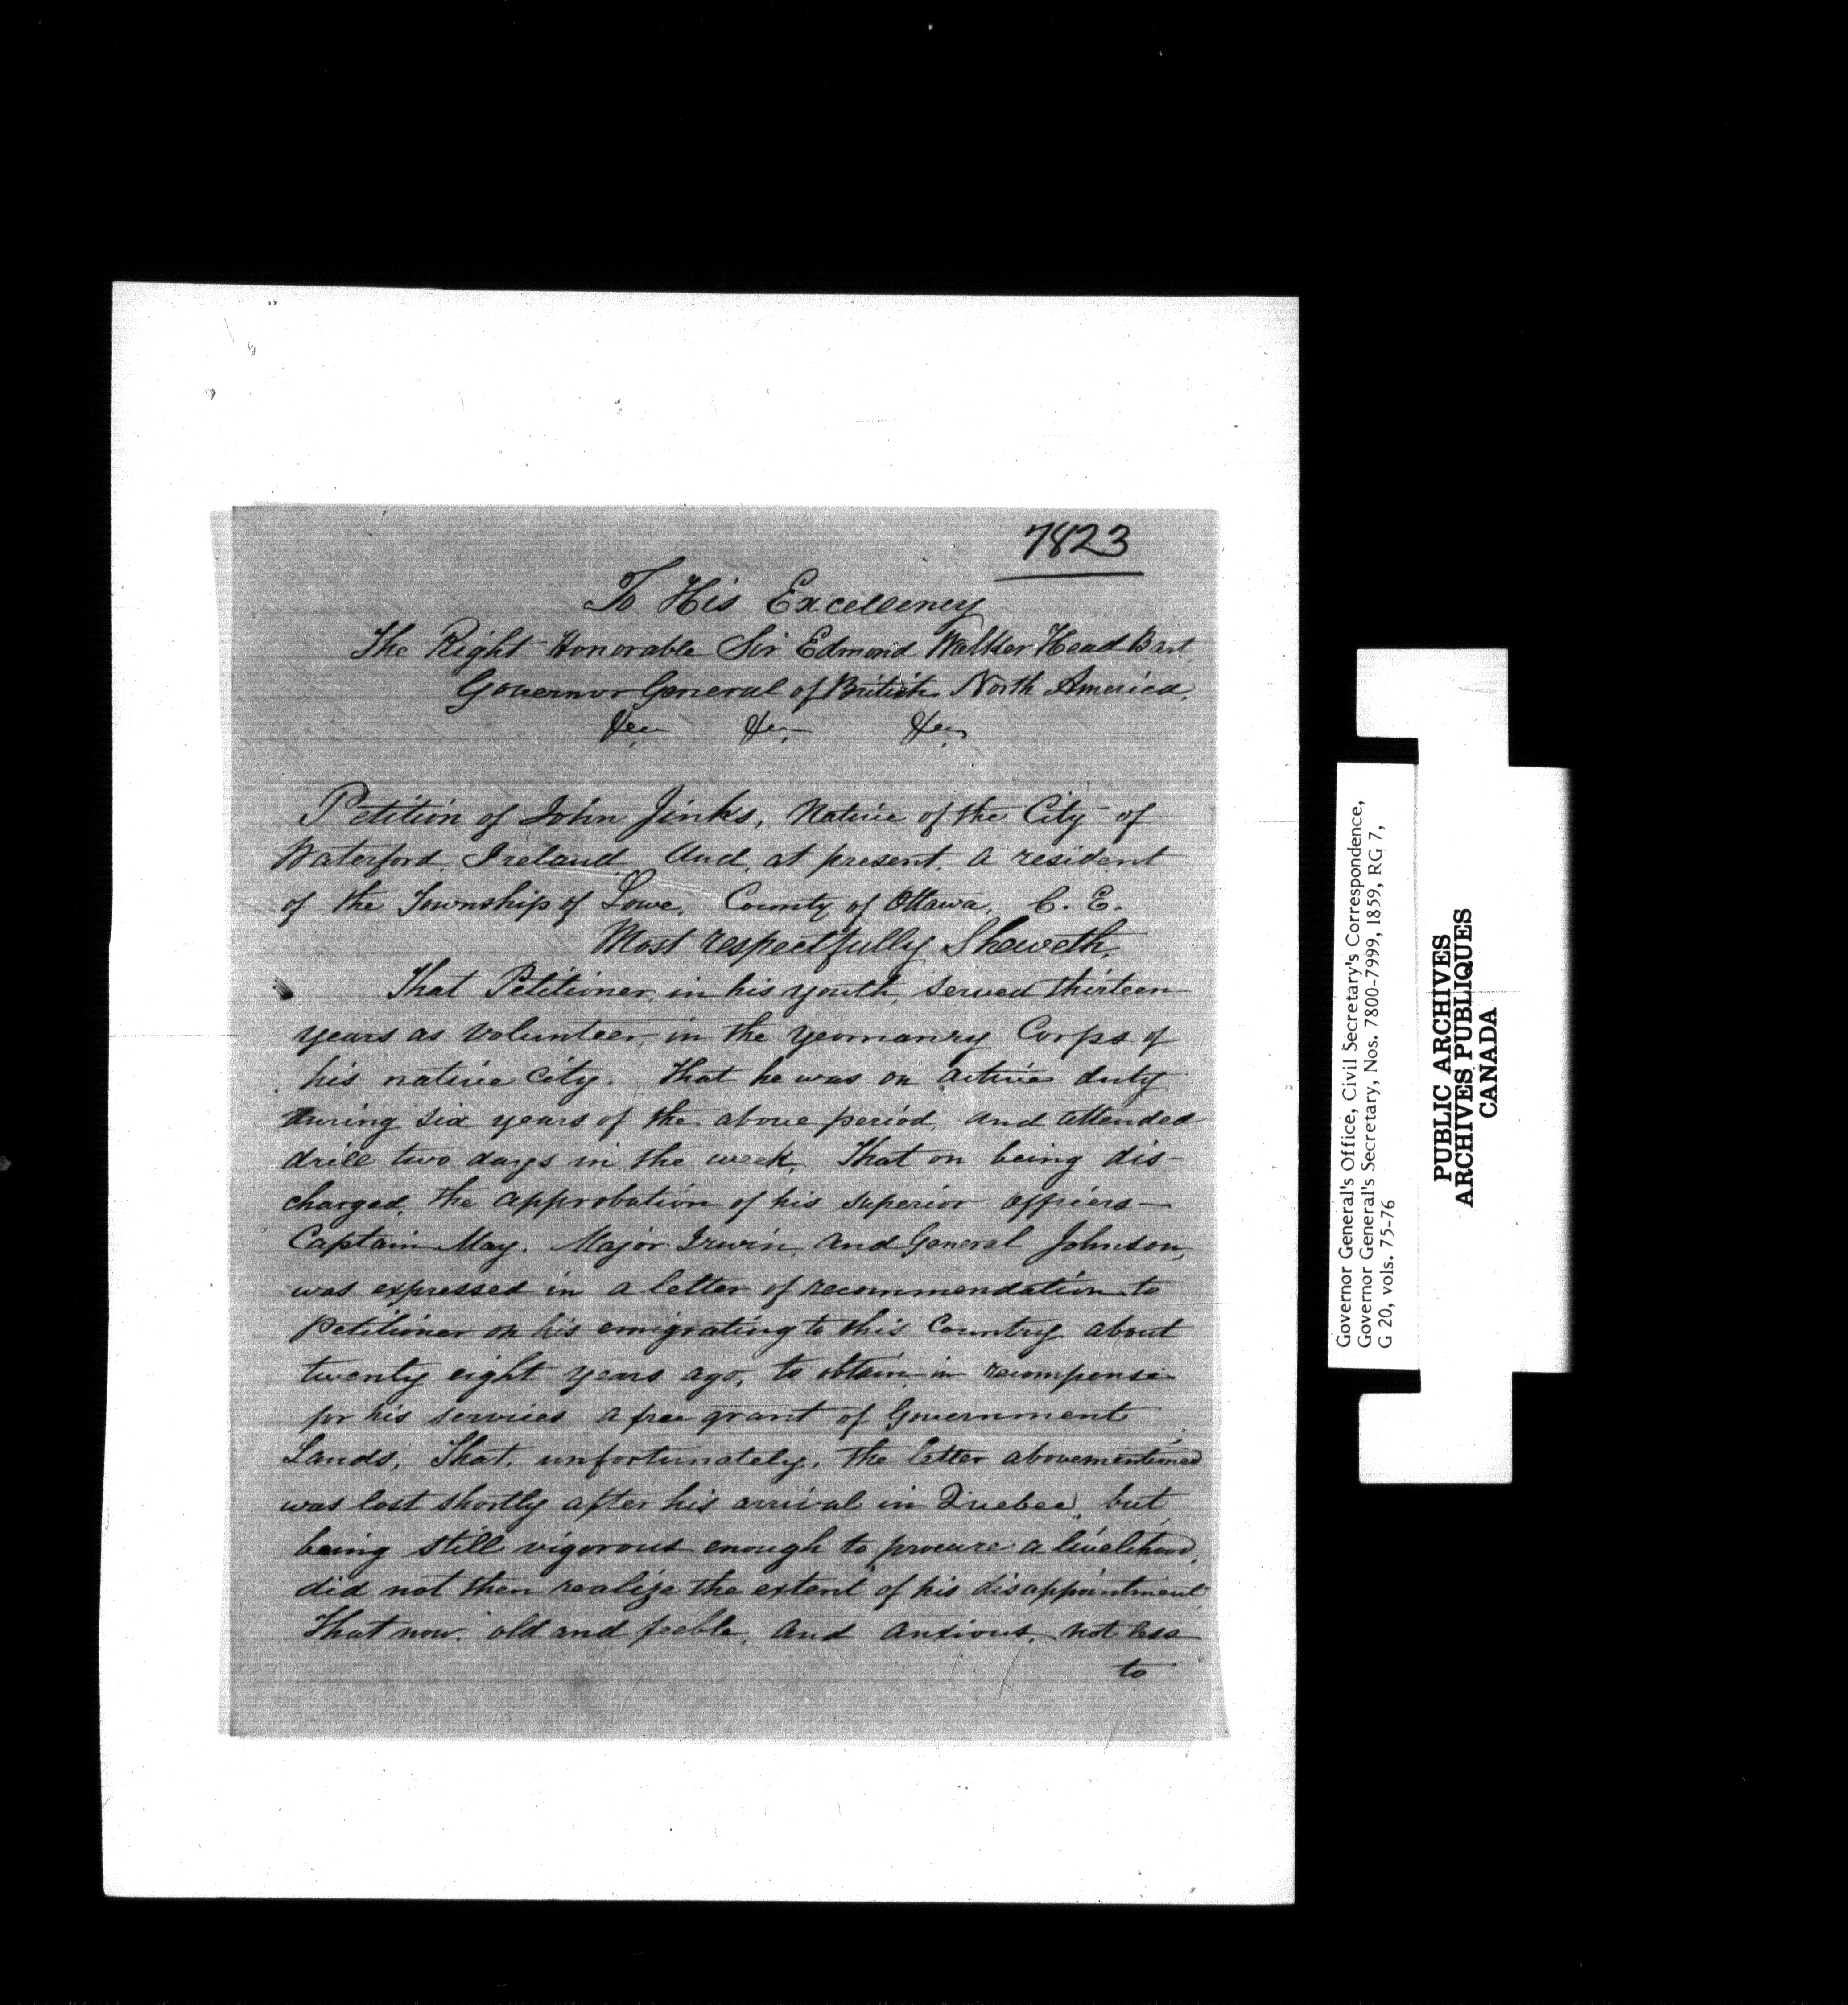 7823
To His Excellency
The Right Honorable Sir Edmond Walker Head Bart.
Governor General of British North America.
&c. &c. &c.
Petition of John Jinks, Native of the City of
Waterford, Ireland, And, at present, a resident
of the Township of Lowe, County of Ottawa, C. E.
Most respectfully Sheweth,
That Petitioner, in his youth, served thirteen
years as Volunteer, in the Yeomanry Corps of
his native City. That he was on active duty
during six years of the above period, and attended
drill two days in the week. That on being dis-
charged, the approbation of his superior officers—
Captain May, Major Irwin, and General Johnson,
was expressed in a letter of recommendation to
Petitioner on his emigrating to this Country about
twenty eight years ago, to obtain in recompense
for his services a free grant of Government
Lands, That, unfortunately, the letter abovementioned
was lost shortly after his arrival in Quebec, but
being still vigorous enough to procure a livelihood,
did not then realize the extent of his disappointment.
That now, old and feeble, and anxious, not less
to
Governor General's Office, Civil Secretary's Correspondence,
Governor General's Secretary, Nos. 7800-7999, 1859, RG 7,
G 20, vols. 75-76
PUBLIC ARCHIVES
ARCHIVES PUBLIQUES
CANADA